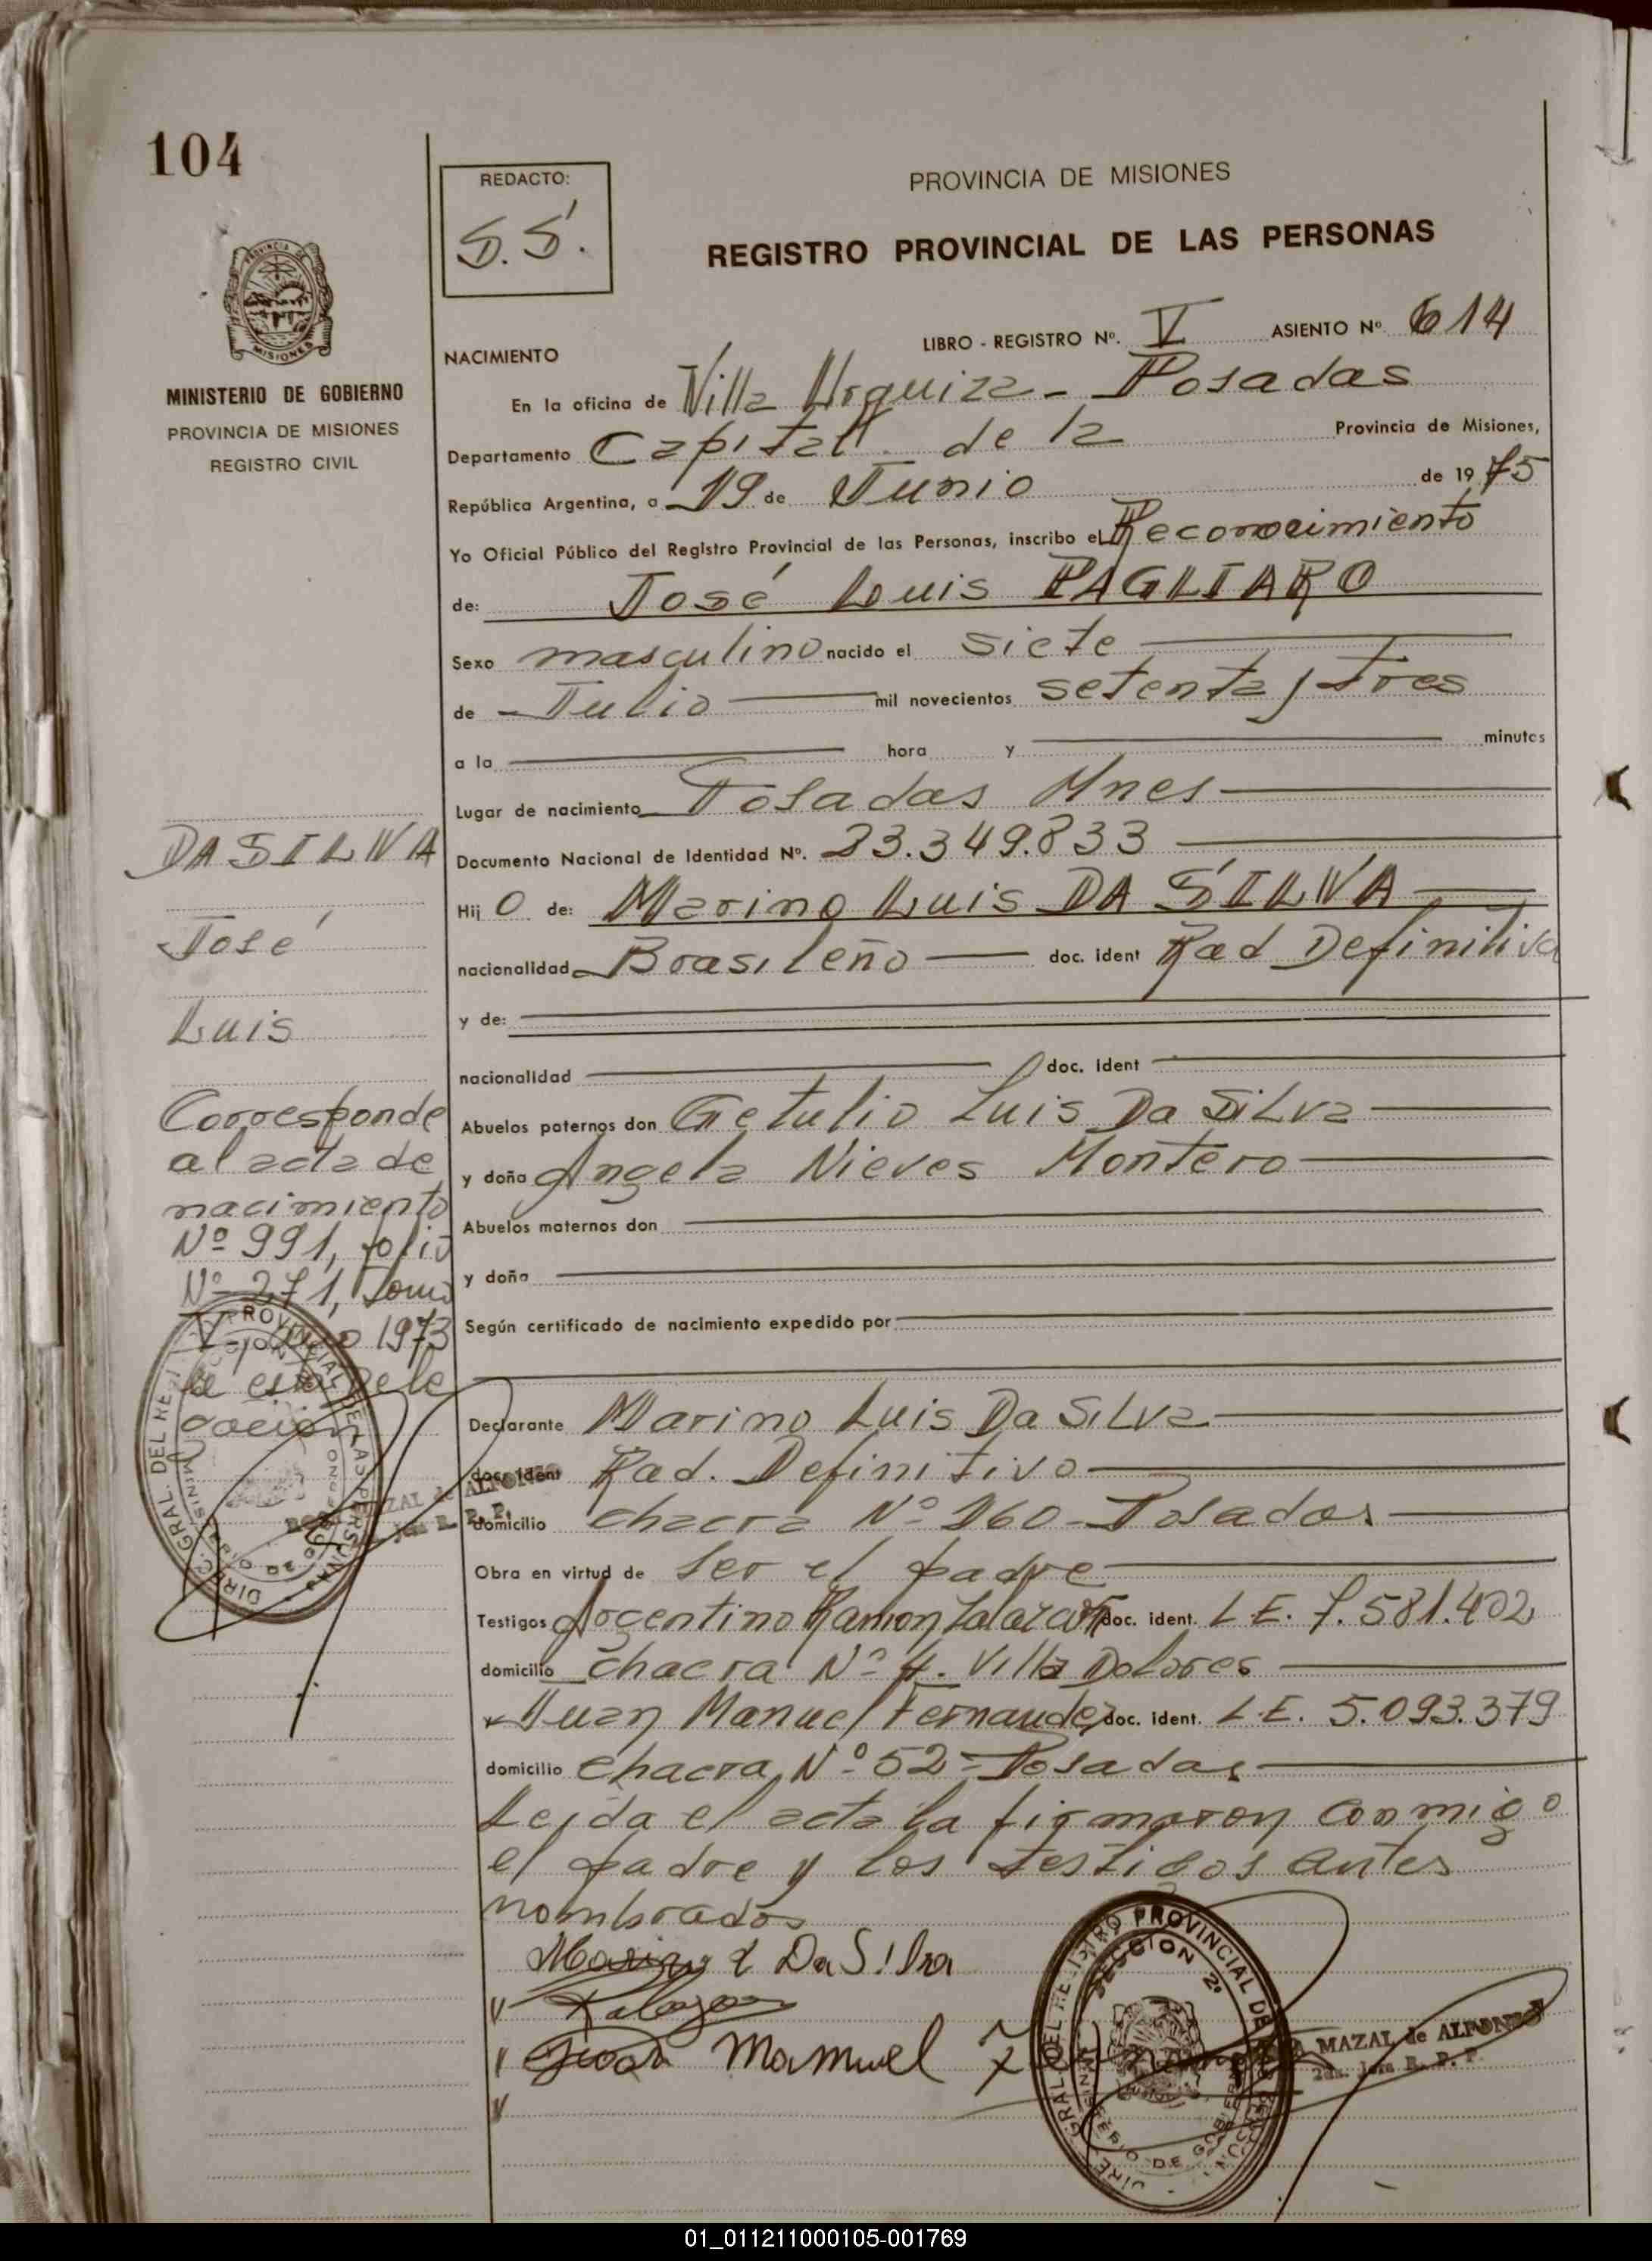 104
REDACTO:
S.S.
PROVINCIA DE MISIONES
REGISTRO PROVINCIAL DE LAS PERSONAS
PROVINCIA DE
MISIONES
MINISTERIO DE GOBIERNO
PROVINCIA DE MISIONES
REGISTRO CIVIL
LIBRO - REGISTRO Nº. V ASIENTO Nº 614
NACIMIENTO
En la oficina de Villa Urquiza - Posadas
Departamento Capital de la Provincia de Misiones,
República Argentina, a 19 de Junio de 1975
Yo Oficial Público del Registro Provincial de las Personas, inscribo el Reconocimiento
de: José Luis PAGLIARO
Sexo masculino nacido el siete
de Julio mil novecientos setenta y tres
a la hora y minutos
Lugar de nacimiento Posadas Mnes
Documento Nacional de Identidad Nº. 23.349.833
Hij o de: Marino Luis DA SILVA
nacionalidad Brasileño doc. ident Rad Definitiva
y de:
nacionalidad doc. ident
Abuelos paternos don Getulio Luis Da Silva
y doña Angela Nieves Montero
Abuelos maternos don
y doña
Según certificado de nacimiento expedido por
Declarante Marino Luis Da Silva
doc. ident Rad. Definitivo
domicilio chacra Nº 160 - Posadas
Obra en virtud de ser el padre
Testigos Argentino Ramon Zalazar doc. ident. L.E. 7.581.402
domicilio chacra Nº 4. Villa Dolores
y Juan Manuel Fernandez doc. ident. L.E. 5.093.379
domicilio chacra Nº 52 - Posadas
Leida el acta la firmaron conmigo
el padre y los testigos antes
nombrados
Marino L Da Silva
Juan Manuel
DA SILVA
José
Luis
Corresponde
al acta de
nacimiento
Nº 991, folio
Nº 271, Tomo
V- año 1973
de esta dele
gación
MAZAL de ALFONSO
DIREC. GRAL. DEL REGISTRO PROVINCIAL DE LAS PERSONAS
SECCION 2ª
MINISTERIO DE GOBIERNO
MAZAL de ALFONSO
2da. Jefa R. P. P.
01_011211000105-001769